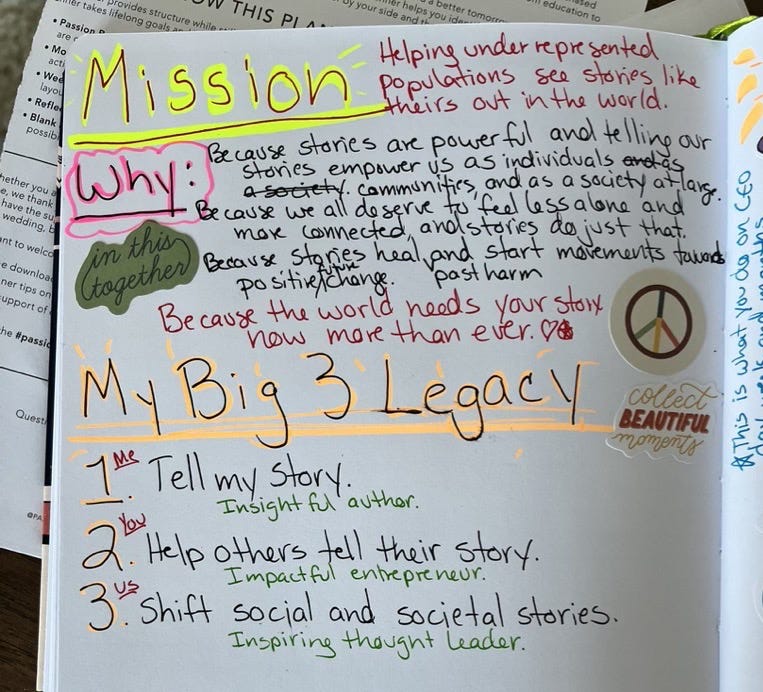 provides structure while
ner takes lifelong goals a
OW THIS PLA
by your side and th
ner helps you iden
a better tomorrow
education to
• Passion
are
• Mo
acti
• Wee
layou
• Refle
• Blank
possib
hether you a
e, we thank
have the su
wedding, b
ant to welco
e downloa
ner tips on
upport of
he #passio
Questi
@PA
Mission
Helping underrepresented
populations see stories like
theirs out in the world.
Why:
Because stories are powerful and telling our
stories empower us as individuals and as
a society. communities, and as a society at large.
Because we all deserve to feel less alone and
more connected, and stories do just that.
in this
together
Because stories heal and start movements towards
positive future change. past harm
Because the world needs your story
now more than ever. ♡
My Big 3 Legacy
collect
BEAUTIFUL
moments
1. Me Tell my story.
Insightful author.
2. You Help others tell their story.
Impactful entrepreneur.
3. us Shift social and societal stories.
Inspiring thought leader.
*This is what you do on CEO